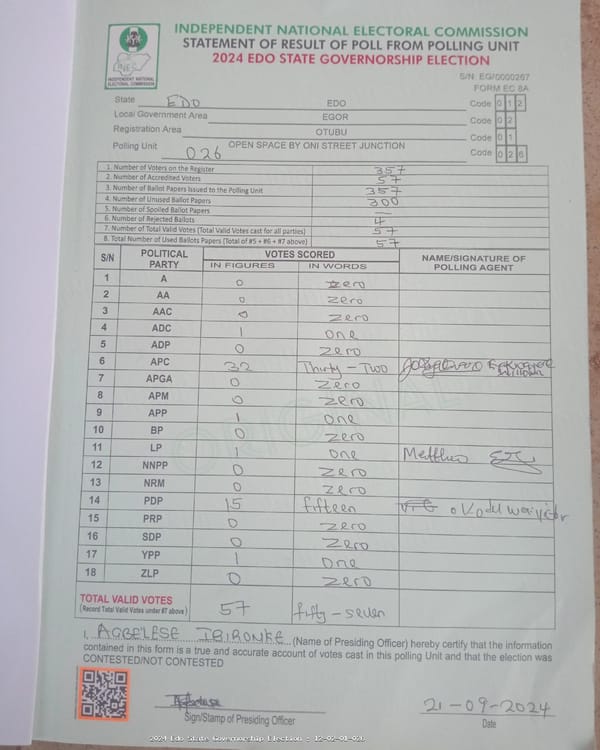 INEC
INDEPENDENT NATIONAL ELECTORAL COMMISSION
INDEPENDENT NATIONAL ELECTORAL COMMISSION
STATEMENT OF RESULT OF POLL FROM POLLING UNIT
2024 EDO STATE GOVERNORSHIP ELECTION
S/N EG/0000267
FORM EC 8A
State EDO EDO Code 0 1 2
Local Government Area EGOR Code 0 2
Registration Area OTUBU Code 0 1
Polling Unit 026 OPEN SPACE BY ONI STREET JUNCTION Code 0 2 6
1. Number of Voters on the Register 357
2. Number of Accredited Voters 57
3. Number of Ballot Papers Issued to the Polling Unit 357
4. Number of Unused Ballot Papers 300
5. Number of Spoiled Ballot Papers —
6. Number of Rejected Ballots 4
7. Number of Total Valid Votes (Total Valid Votes cast for all parties) 57
8. Total Number of Used Ballots Papers (Total of #5 + #6 + #7 above) 57
S/N POLITICAL PARTY VOTES SCORED NAME/SIGNATURE OF POLLING AGENT
IN FIGURES IN WORDS
1 A 0 zero
2 AA 0 zero
3 AAC 0 zero
4 ADC 1 one
5 ADP 0 zero
6 APC 32 Thirty-Two
7 APGA 0 zero
8 APM 0 zero
9 APP 1 one
10 BP 0 zero
11 LP 1 one
12 NNPP 0 zero
13 NRM 0 zero
14 PDP 15 fifteen
15 PRP 0 zero
16 SDP 0 zero
17 YPP 1 one
18 ZLP 0 zero
TOTAL VALID VOTES
(Record Total Valid Votes under #7 above) 57 fifty-seven
I, AGBELESE IBIRONKE (Name of Presiding Officer) hereby certify that the information
contained in this form is a true and accurate account of votes cast in this polling Unit and that the election was
CONTESTED/NOT CONTESTED
21-09-2024
Sign/Stamp of Presiding Officer Date
2024 Edo State Governorship Election : 12-02-01-026